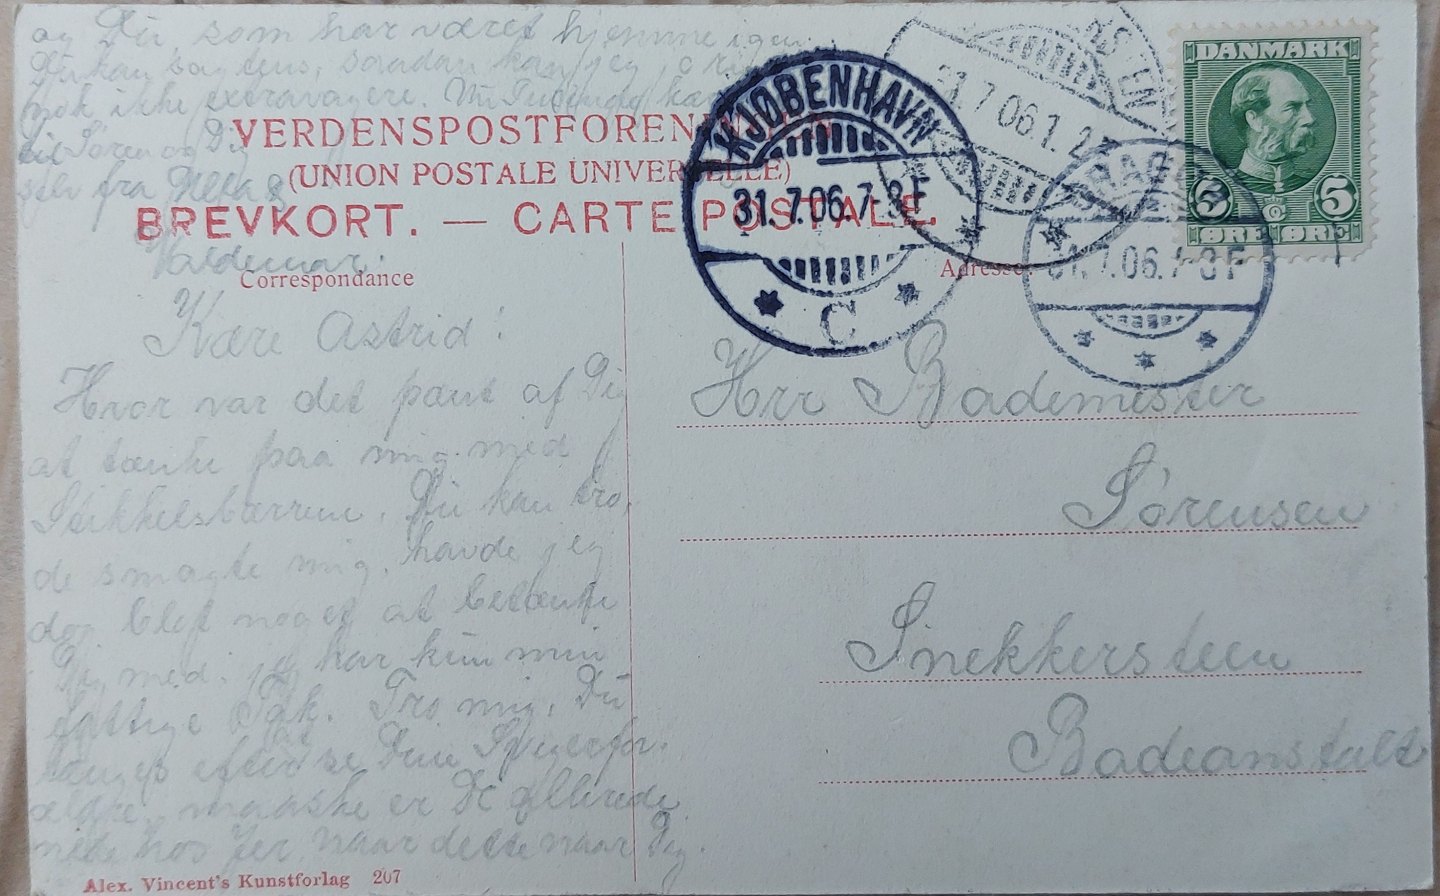 og Du, som har været hjemme igen
Du kan sagtens, saadan kan jeg
nok ikke extravagere.
til Søren og Dig
fra
Valdemar.
VERDENSPOSTFORENINGEN
(UNION POSTALE UNIVERSELLE)
BREVKORT. — CARTE POSTALE.
Correspondance
Adresse.
KJØBENHAVN
31.7.06.7-8 F
C
31.7.06.1
DRAGØR
31.7.06.7-8 F
DANMARK
5 5
ØRE ØRE
Kære Astrid!
Hvor var det pænt af Dig
at tænke paa mig med
Stikkelsbærrene. Du kan tro,
de smagte mig, havde jeg
dog blot noget at betænke
Dig med. jeg har kun min
fattige Tak. Tro mig, Du
længes efter se Dine Svigerfor-
ældre, maaske er De allerede
nede hos Jer, naar dette naar Dig.
Hrr Bademester
Sørensen
Snekkersteen
Badeanstalt
Alex. Vincent's Kunstforlag 207